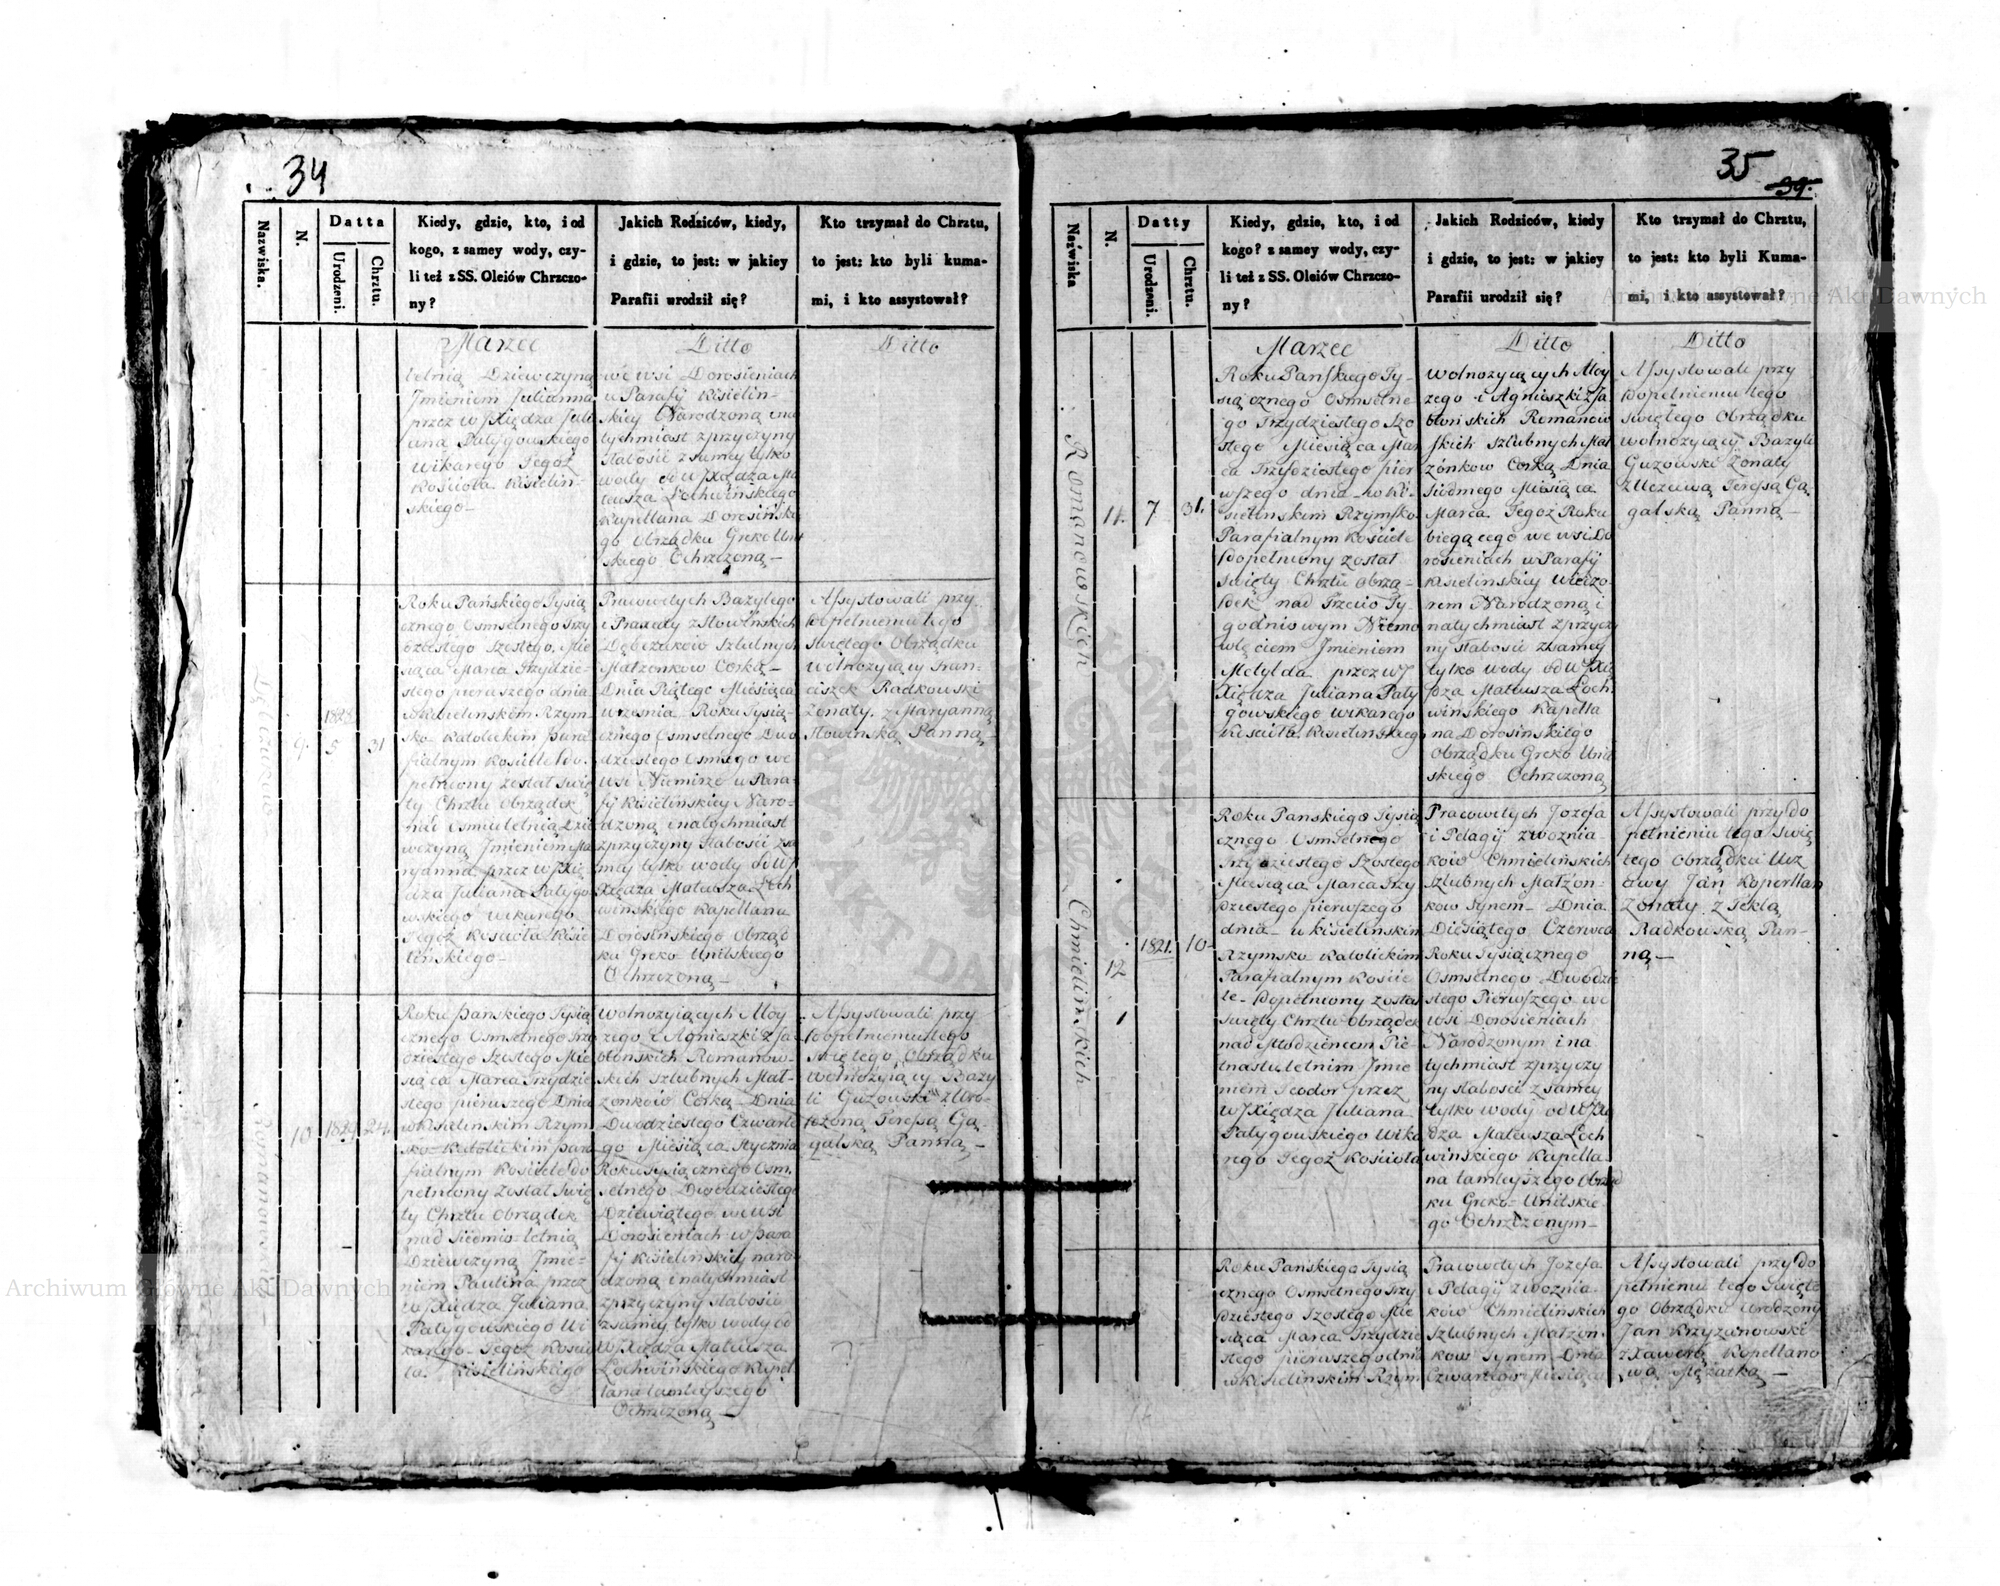 34
Nazwiska.
N.
Datta
Urodzeni.
Chrztu.
Kiedy, gdzie, kto, i od
kogo, z samey wody, czy-
li też z SS. Oleiów Chrzczo-
ny?
Jakich Rodziców, kiedy,
i gdzie, to jest: w jakiey
Parafii urodził się?
Kto trzymał do Chrztu,
to jest: kto byli kuma-
mi, i kto assystował?
Marzec
letnią Dziewczyną
Jmieniem Julianna
przez WJXiędza Juli
ana Pałygowskiego
Wikarego Tegoż
Kościoła Kisielin-
skiego-
Ditto
we wsi Dorosieniach
w Parafij Kisielin-
skiey Narodzoną ina
tychmiast zprzyczyny
słabości zsamey tylko
wody od WJXiędza Ma
teusza Łochwińskiego
Kapellana Dorosińskie
go Obrządku Greko Unit
skiego Ochrzczoną-
Ditto
9.
1828.
5
31
Roku Pańskiego Tysią
cznego Osmsetnego Trzy
dziestego Szostego, Mie
siąca Marca Trzydzie-
stego pierwszego dnia
wKisielinskim Rzym-
sko-Katolickim Para
fialnym Kościele do-
pełniony został Świę
ty Chrztu Obrządek
nad osmiuletnią Dzie
wczyną Jmieniem Ma
ryanna przez WJXię
dza Juliana Pałygo
wskiego Wikarego
Tegoż Kościoła Kisie
lińskiego-
Pracowitych Bazylego
i Praxedy z Słowinskich
Dębczuków Szlubnych
Małżonkow Corką-
Dnia Piątego Miesiąca
Września Roku Tysią-
cznego Osmsetnego Dwu
dziestego Osmego we
wsi Niemirze w Para-
fij Kisielińskiey Naro-
dzoną inatychmiast
zprzyczyny słabości zsa
mey tylko wody od WJ
Xiędza Mateusza Łoch
wińskiego Kapellana
Dorosińskiego Obrząd
ku Greko Unitskiego
Ochrzczoną-
Assystowali przy
dopełnieniu tego
Świętego Obrządku
Wolnożyiący Fran-
ciszek Radkowski
Żonaty, z Maryanną
Słowinską Panną-
10
1829
24
Roku Pańskiego Tysią
cznego Osmsetnego Trzy
dziestego Szostego Mie
siąca Marca Trzydzie
stego pierwszego Dnia
wKisielinskim Rzym
sko-Katolickim Para
fialnym Kościele do
pełniony został Świę
ty Chrztu Obrządek
nad Siedmio-letnią
Dziewczyną Jmie-
niem Paulina przez
WJXiędza Juliana
Pałygowskiego Wi
karego Tegoż Kościo
ła Kisielińskiego
Wolnożyiących Moy
zego i Agnieszki z Ja
błońskich Romanow-
skich Szlubnych Mał-
żonkow Corką Dnia
Dwudziestego Czwarte
go Miesiąca Stycznia
Roku Tysiącznego Osm-
setnego Dwudziestego
Dziewiątego we wsi
Dorosieniach w Para
fij Kisielińskiey naro
dzoną inatychmiast
zprzyczyny słabości
zsamey tylko wody od
WJXiędza Mateusza
Łochwińskiego Kapel
lana tamteyszego
Ochrzczoną-
Assystowali przy
dopełnieniu tego
Świętego Obrządku
Wolnożyiący Bazy
li Guzowski z Uro-
dzoną Teressą Ga-
galską Panną-
35
Nazwiska
N.
Datty
Urodzeni.
Chrztu.
Kiedy, gdzie, kto, i od
kogo? z samey wody, czy-
li też z SS. Oleiów Chrzczo-
ny?
Jakich Rodziców, kiedy
i gdzie, to jest: w jakiey
Parafii urodził się?
Kto trzymał do Chrztu,
to jest: kto byli Kuma-
mi, i kto assystował?
Romanowskich
11.
7
31.
Marzec
Roku Pańskiego Ty-
siącznego Osmsetne
go Trzydziestego Szo
stego Miesiąca Mar
ca Trzydziestego pier
wszego dnia wKi-
sielinskim Rzymsko
Parafialnym Kościele
Dopełniony został
Święty Chrztu Obrzą-
dek nad Trzecio Ty-
godniowym Niemo
wlęciem Jmieniem
Metylda przez WJ
Xiędza Juliana Pały
gowskiego Wikarego
Kościoła Kisielinskiego
Ditto
Wolnożyiących Moy
zego i Agnieszki z Ja
błońskich Romanow
skich Szlubnych Mał
żonkow Corką Dnia
Siodmego Miesiąca
Marca Tegoż Roku
biegącego we wsi Do
rosieniach w Parafij
Kisielińskiey wieczo-
rem Narodzoną i
natychmiast zprzyczy
ny słabości zsamey
tylko wody od WJXię
dza Mateusza Łoch
wińskiego Kapella
na Dorosinskiego
Obrządku Greko Unit
skiego Ochrzczoną
Ditto
Assystowali przy
Dopełnieniu tego
Świętego Obrządku
Wolnożyiący Bazyli
Guzowski Żonaty
z Uczciwą Teressą Ga
galską Panną-
Chmielińskich
12
1821.
10-
Roku Pańskiego Tysią
cznego Osmsetnego
Trzydziestego Szostego
Miesiąca Marca Trzy
dziestego pierwszego
dnia wKisielinskim
Rzymsko Katolickim
Parafialnym Koście
le- Dopełniony został
Święty Chrztu Obrządek
nad Młodzieńcem Pię
tnastuletnim Jmie
niem Teodor przez
WJXiędza Juliana
Pałygowskiego Wika
rego Tegoż Kościoła
Pracowitych Jozefa
i Pelagij z Woznia-
ków Chmielińskich
Szlubnych Małżon-
kow Synem- Dnia
Dziesiątego Czerwca
Roku Tysiącznego
Osmsetnego Dwudzie
stego Pierwszego we
wsi Dorosieniach
Narodzonym i na
tychmiast zprzyczy
ny słabości z samey
tylko wody od WJXię
dza Mateusza Łoch
wińskiego Kapella-
na tamteyszego Obrząd
ku Greko-Unitskie
go Ochrzczonym-
Assystowali przy do
pełnieniu tego Świę
tego Obrządku Ucz
ciwy Jan Kopertlan
Żonaty z Teklą
Radkowską Pan-
ną-
Roku Pańskiego Tysią
cznego Osmsetnego Trzy
dziestego Szostego Mie
siąca Marca Trzydzie
stego pierwszego dnia
wKisielinskim Rzym
Pracowitych Jozefa
i Pelagij z Woznia-
ków Chmielińskich
Szlubnych Małżon-
kow Synem Dnia
Czwartego Miesiąca
Assystowali przy do
pełnieniu tego Święte
go Obrządku Urodzony
Jan Krzyżanowski
z Xawerą Kopellano
wą Mężatką-
Archiwum Główne Akt Dawnych
Archiwum Główne Akt Dawnych